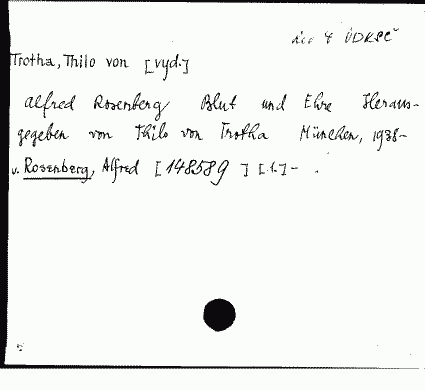 ÚDKSČ
Trotha, Thilo von [vyd.]
Alfred Rosenberg Blut und Ehre Heraus-
gegeben von Thilo von Trotha München, 1938-
v. Rosenberg, Alfred [148589] [1.]-